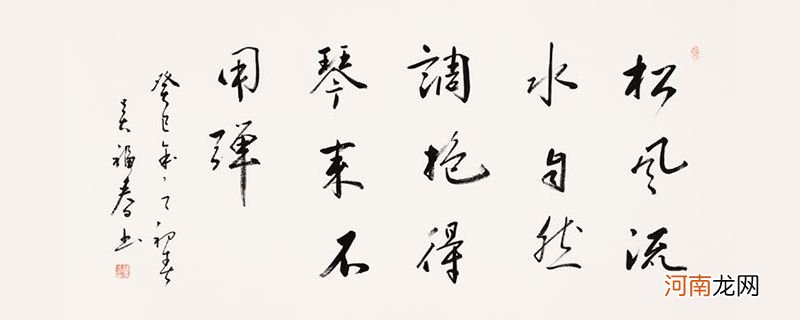 松风流
水自然
調抱得
琴来不
用弹
癸巳年之初春
吴福春书
河南龙网